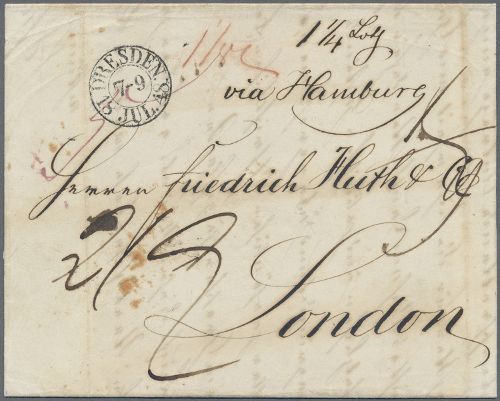 DRESDEN.
7-9
18 JUL. 48
1¼ Loth
via Hamburg
Herren Friedrich Huth & Co
2/2
London